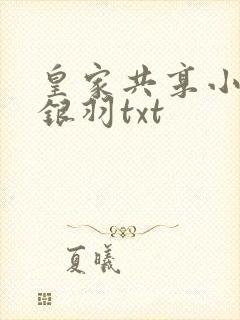 皇家共享小
银羽txt
夏曦